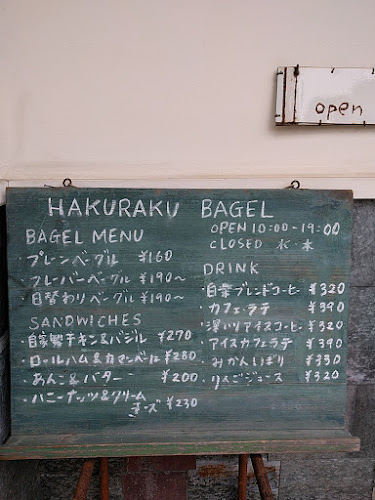 open
HAKURAKU BAGEL
OPEN 10:00-19:00
CLOSED 水・木
BAGEL MENU
・プレーンベーグル ¥160
・フレーバーベーグル ¥190〜
・日替わりベーグル ¥190〜
SANDWICHES
・自家製チキン&バジル ¥270
・ロールハム&カマンベール ¥280
・あんこ&バター ¥200
・ハニーナッツ&クリームチーズ ¥230
DRINK
・白楽ブレンドコーヒー ¥320
・カフェラテ ¥390
・深いりアイスコーヒー ¥320
・アイスカフェラテ ¥390
・みかんしぼり ¥350
・りんごジュース ¥320